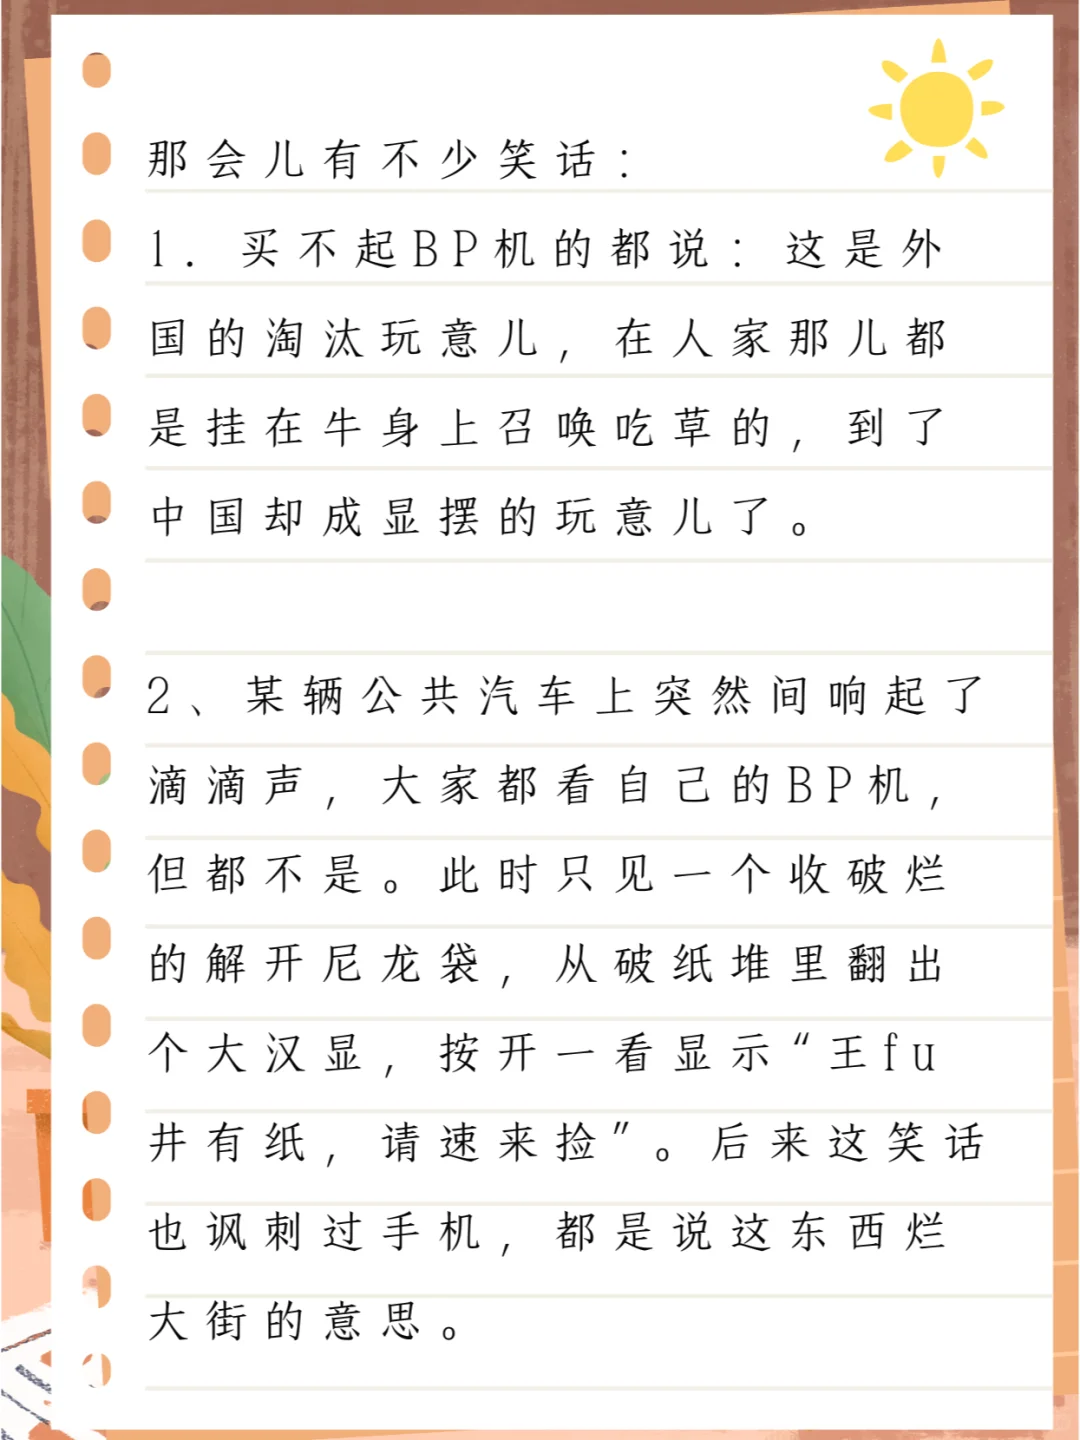 那会儿有不少笑话：
1. 买不起BP机的都说：这是外
国的淘汰玩意儿，在人家那儿都
是挂在牛身上召唤吃草的，到了
中国却成显摆的玩意儿了。
2、某辆公共汽车上突然间响起了
滴滴声，大家都看自己的BP机，
但都不是。此时只见一个收破烂
的解开尼龙袋，从破纸堆里翻出
个大汉显，按开一看显示“王fu
井有纸，请速来捡”。后来这笑话
也讽刺过手机，都是说这东西烂
大街的意思。